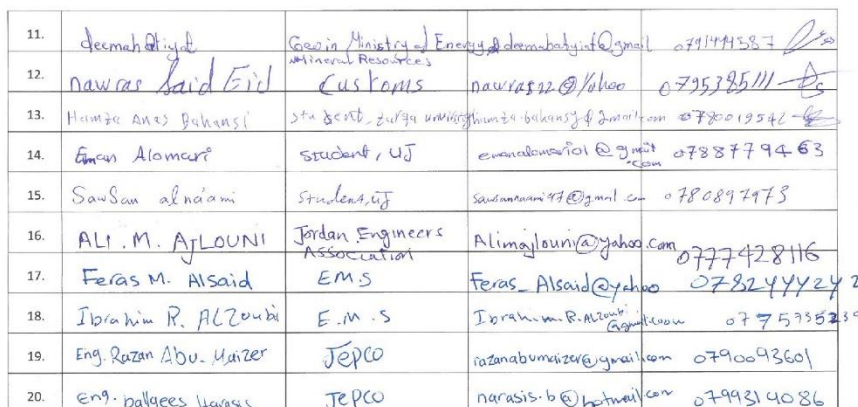 11. deemah Atiyat Geo in Ministry of Energy & Mineral Resources deemahatyiat@gmail 0791444587
12. nawras Said Eid Customs nawras22@Yahoo 0795385111
13. Hamza Anas Bahansi student, zarqa hamza.bahansy@gmail.com 0780019542
14. Eman Alomari student, UJ emanalomari01@gmail.com 0788779463
15. SawSan alna'ami Student, UJ sawsannaami97@gmail.com 0780897973
16. ALI . M. AJLOUNI Jordan Engineers Association Alimajlouni@yahoo.com 0777428116
17. Feras M. Alsaid EM.S Feras_Alsaid@yahoo 0782444242
18. Ibrahim R. ALZoubi E.M.S Ibrahim.R.ALZoubi@gmail.com 0775735239
19. Eng. Razan Abu-Maizer JEPCO razanabumaizer@gmail.com 0790093601
20. eng. ballqees JEPCO narasis.b@hotmail.com 0799314086